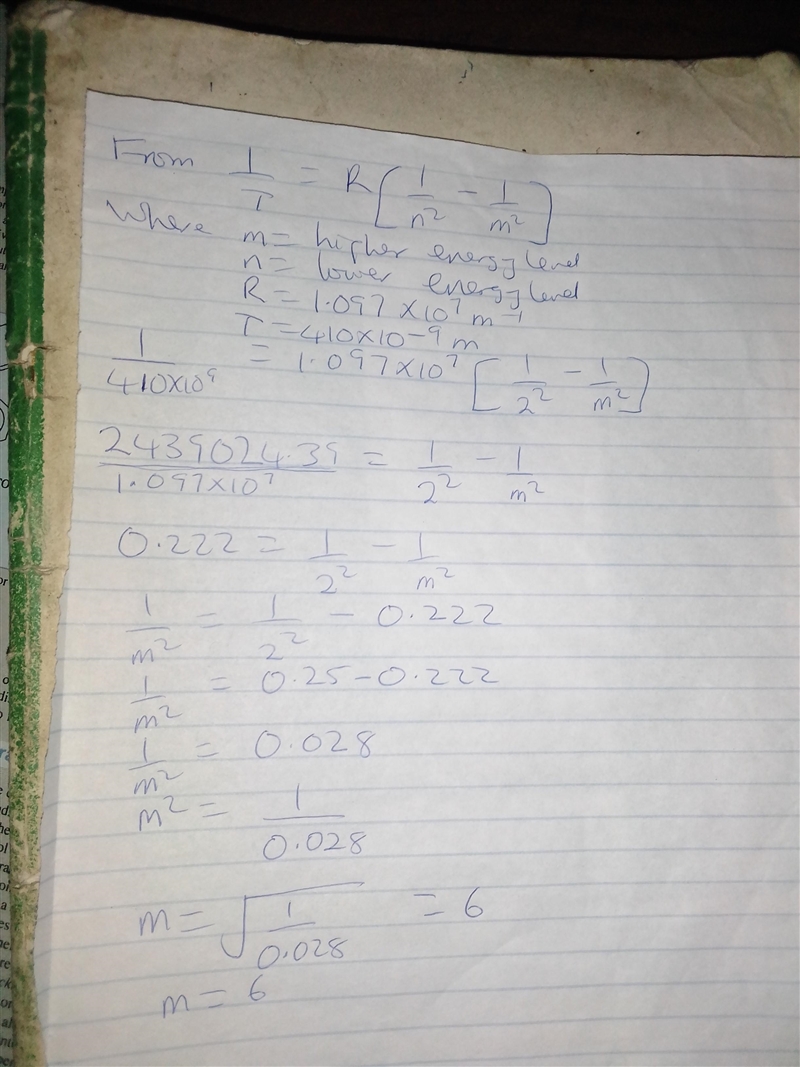 From 1/T = R[1/n² − 1/m²]
Where m = higher energy level
n = lower energy level
R = 1.097 × 10⁷ m⁻¹
T = 410×10−9 m
1/410×10⁹ = 1.097×10⁷ [1/2² − 1/m²]
2439024.39/1.097×10⁷ = 1/2² − 1/m²
0.222 = 1/2² − 1/m²
1/m² = 1/2² − 0.222
1/m² = 0.25 − 0.222
1/m² = 0.028
m² = 1/0.028
m = √(1/0.028) = 6
m = 6